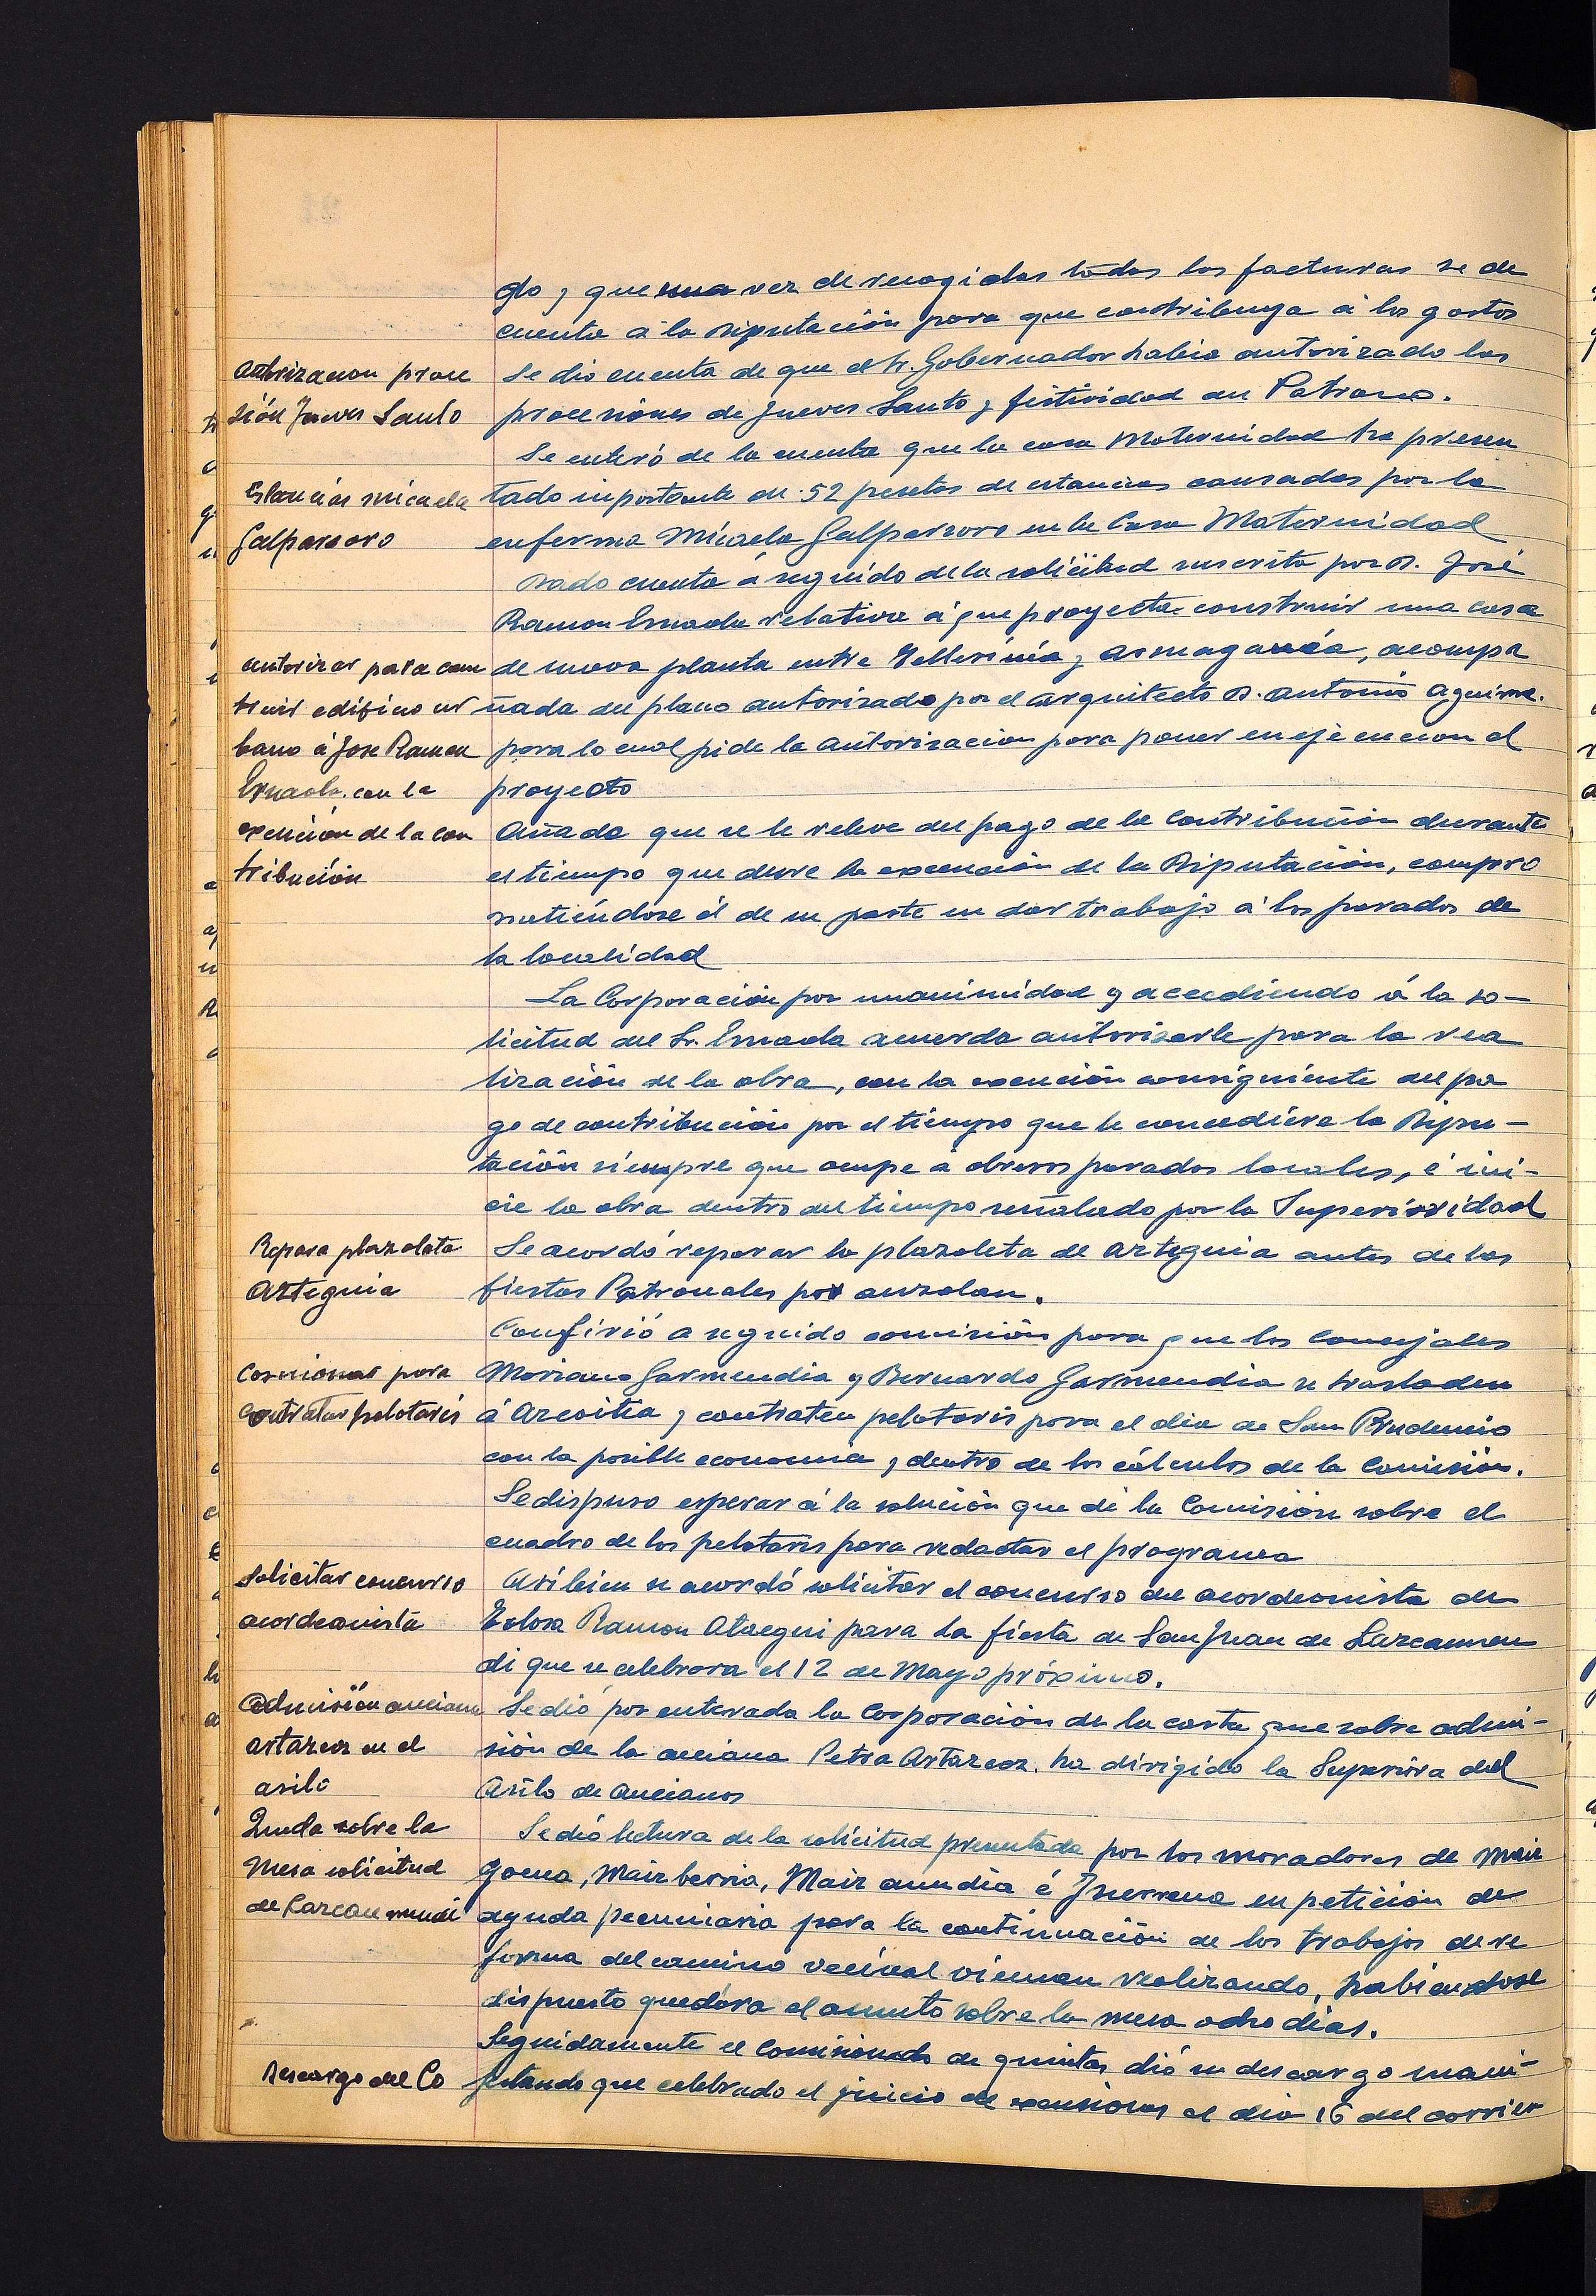 do y que una vez de recogidas todas las facturas se de
cuenta á la Diputación para que contribuya á los gastos
Autorizacion proce
Se dio cuenta de que el Sr. Gobernador habia autorizado las
sión Jueves Santo
procesiones de Jueves Santo y festividad del Patrono.
Se enteró de la cuenta que la casa Maternidad ha presen
Estancias Micaela
tado importante de 52 pesetas de estancias causadas por la
Galparsoro
enferma Micaela Galparsoro en la Casa Maternidad
Dado cuenta á seguido de la solicitud suscrita por D. José
Ramon Ernaola relativa á que proyecta construir una casa
autorizar para cons
de nueva planta entre y , acompa
truir edificio ur
ñada del plano autorizado por el arquitecto D. Antonio Aguirre.
bano á Jose Ramon
para lo cual pide la autorizacion para poner en ejecucion el
Ernaola, con la
proyecto
exencion de la con
Añade que se le releve del pago de la contribución durante
tribución
el tiempo que dure la exención de la Diputación, compro
metiéndose él de su parte en dar trabajo á los parados de
la localidad
La Corporación por unanimidad y accediendo á la so-
licitud del Sr. Ernaola acuerda autorizarle para la rea
lización de la obra, con la exención consiguiente del pa
go de contribución por el tiempo que le concediera la Dipu-
tación siempre que ocupe á obreros parados locales, é ini-
cie la obra dentro del tiempo señalado por la Superioridad
Repara plazoleta
Se acordó reparar la plazoleta de Arteguia antes de las
Arteguia
fiestas Patronales por auzolan.
Confirió a seguido comisión para que los Concejales
Comisionar para
Mariano Garmendia y Bernardo Garmendia se trasladen
contratar pelotaris
á Azcoitia y contraten pelotaris para el dia de San Prudencio
con la posible economia y dentro de los cálculos de la Comisión.
Se dispuso esperar á la solución que dé la Comisión sobre el
cuadro de los pelotaris para redactar el programa
Solicitar concurso
Asi bien se acordó solicitar el concurso del acordeonista de
acordeonista
Tolosa Ramon Otaegui para la fiesta de San Juan de Lazcaumen
di que se celebrara el 12 de Mayo próximo.
Admisión anciana
Se dió por enterada la Corporación de la carta que sobre admi-
Artazcoz en el
sión de la anciana Petra Artazcoz ha dirigido la Superiora del
asilo
Asilo de Ancianos
Queda sobre la
Se dió lectura de la solicitud presentada por los moradores de Maiz
Mesa solicitud
goena, Maiz berria, Maiz aundia é en petición de
de Lazcaumendi
ayuda pecuniaria para la continuación de los trabajos de re
forma del camino vecinal vienen realizando, habiendose
dispuesto quedara el asunto sobre la mesa ocho dias.
Seguidamente el Comisionado de quintas dió su descargo mani-
Descargo del Co
festando que celebrado el juicio de exensiones el dia 16 del corrien